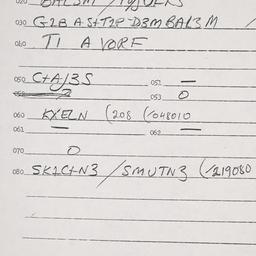 020 BALSM / TYJUERS
030 G2B AS+T2P-D3M BAL3M /
040 TI A VORF
050 C+A/3S 051 —
053 O
060 KXELN (208 (/048010
061 — 062 —
070 O
080 SK1C+N3 / SMUTN3 (/219080